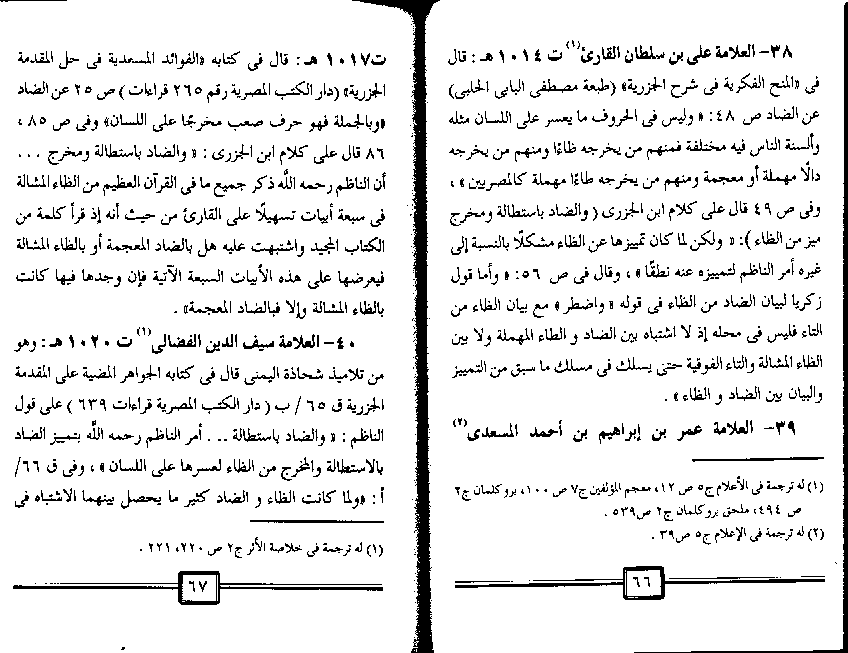 ٣٨- العلامة على بن سلطان القارئ(١) ت ١٠١٤ هـ : قال
فى «المنح الفكرية فى شرح الجزرية» (طبعة مصطفى البابى الحلبى)
عن الضاد ص ٤٨ : « وليس فى الحروف ما يعسر على اللسان مثله
وألسنة الناس فيه مختلفة فمنهم من يخرجه ظاءًا ومنهم من يخرجه
دالًا مهملة أو معجمة ومنهم من يخرجه طاءًا مهملة كالمصريين » ،
وفى ص ٤٩ قال على كلام ابن الجزرى ( والضاد باستطالة ومخرج
ميز من الظاء ): « ولكن لما كان تمييزها عن الظاء مشكلًا بالنسبة إلى
غيره أمر الناظم لتمييزه عنه نطقًا » ، وقال فى ص ٥٦ : « وأما قول
زكريا لبيان الضاد من الظاء فى قوله « واضطر » مع بيان الظاء من
التاء فليس فى محله إذ لا اشتباه بين الضاد و الطاء المهملة ولا بين
الظاء المشالة والتاء الفوقية حتى يسلك فى مسلك ما سبق من التمييز
والبيان بين الضاد و الظاء » .
٣٩- العلامة عمر بن إبراهيم بن أحمد المسعدى(٢)
(١) له ترجمة فى الأعلام ج٥ ص ١٢، معجم المؤلفين ج٧ ص ١٠٠، بروكلمان ج٢
ص ٤٩٤، ملحق بروكلمان ج٢ ص٥٣٩ .
(٢) له ترجمة فى الإعلام ج٥ ص٣٩ .
٦٦
ت١٠١٧ هـ : قال فى كتابه «الفوائد المسعدية فى حل المقدمة
الجزرية» (دار الكتب المصرية رقم ٢٦٥ قراءات ) ص ٢٥ عن الضاد
«وبالجملة فهو حرف صعب مخرجًا على اللسان» وفى ص ٨٥ ،
٨٦ قال على كلام ابن الجزرى : « والضاد باستطالة ومخرج ...
أن الناظم رحمه الله ذكر جميع ما فى القرآن العظيم من الظاء المشالة
فى سبعة أبيات تسهيلًا على القارئ من حيث أنه إذ قرأ كلمة من
الكتاب المجيد واشتبهت عليه هل بالضاد المعجمة أو بالظاء المشالة
فيعرضها على هذه الأبيات السبعة الآتية فإن وجدها فيها كانت
بالظاء المشالة وإلا فبالضاد المعجمة» .
٤٠- العلامة سيف الدين الفضالى(١) ت ١٠٢٠ هـ : وهو
من تلاميذ شحاذة اليمنى قال فى كتابه الجواهر المضية على المقدمة
الجزرية ق ٦٥ / ب ( دار الكتب المصرية قراءات ٦٣٩ ) على قول
الناظم : « والضاد باستطالة ... أمر الناظم رحمه الله بتمييز الضاد
بالاستطالة والمخرج من الظاء لعسرها على اللسان » ، وفى ق ٦٦/
أ : «ولما كانت الظاء و الضاد كثير ما يحصل بينهما الاشتباه فى
(١) له ترجمة فى خلاصة الأثر ج٢ ص ٢٢٠، ٢٢١ .
٦٧